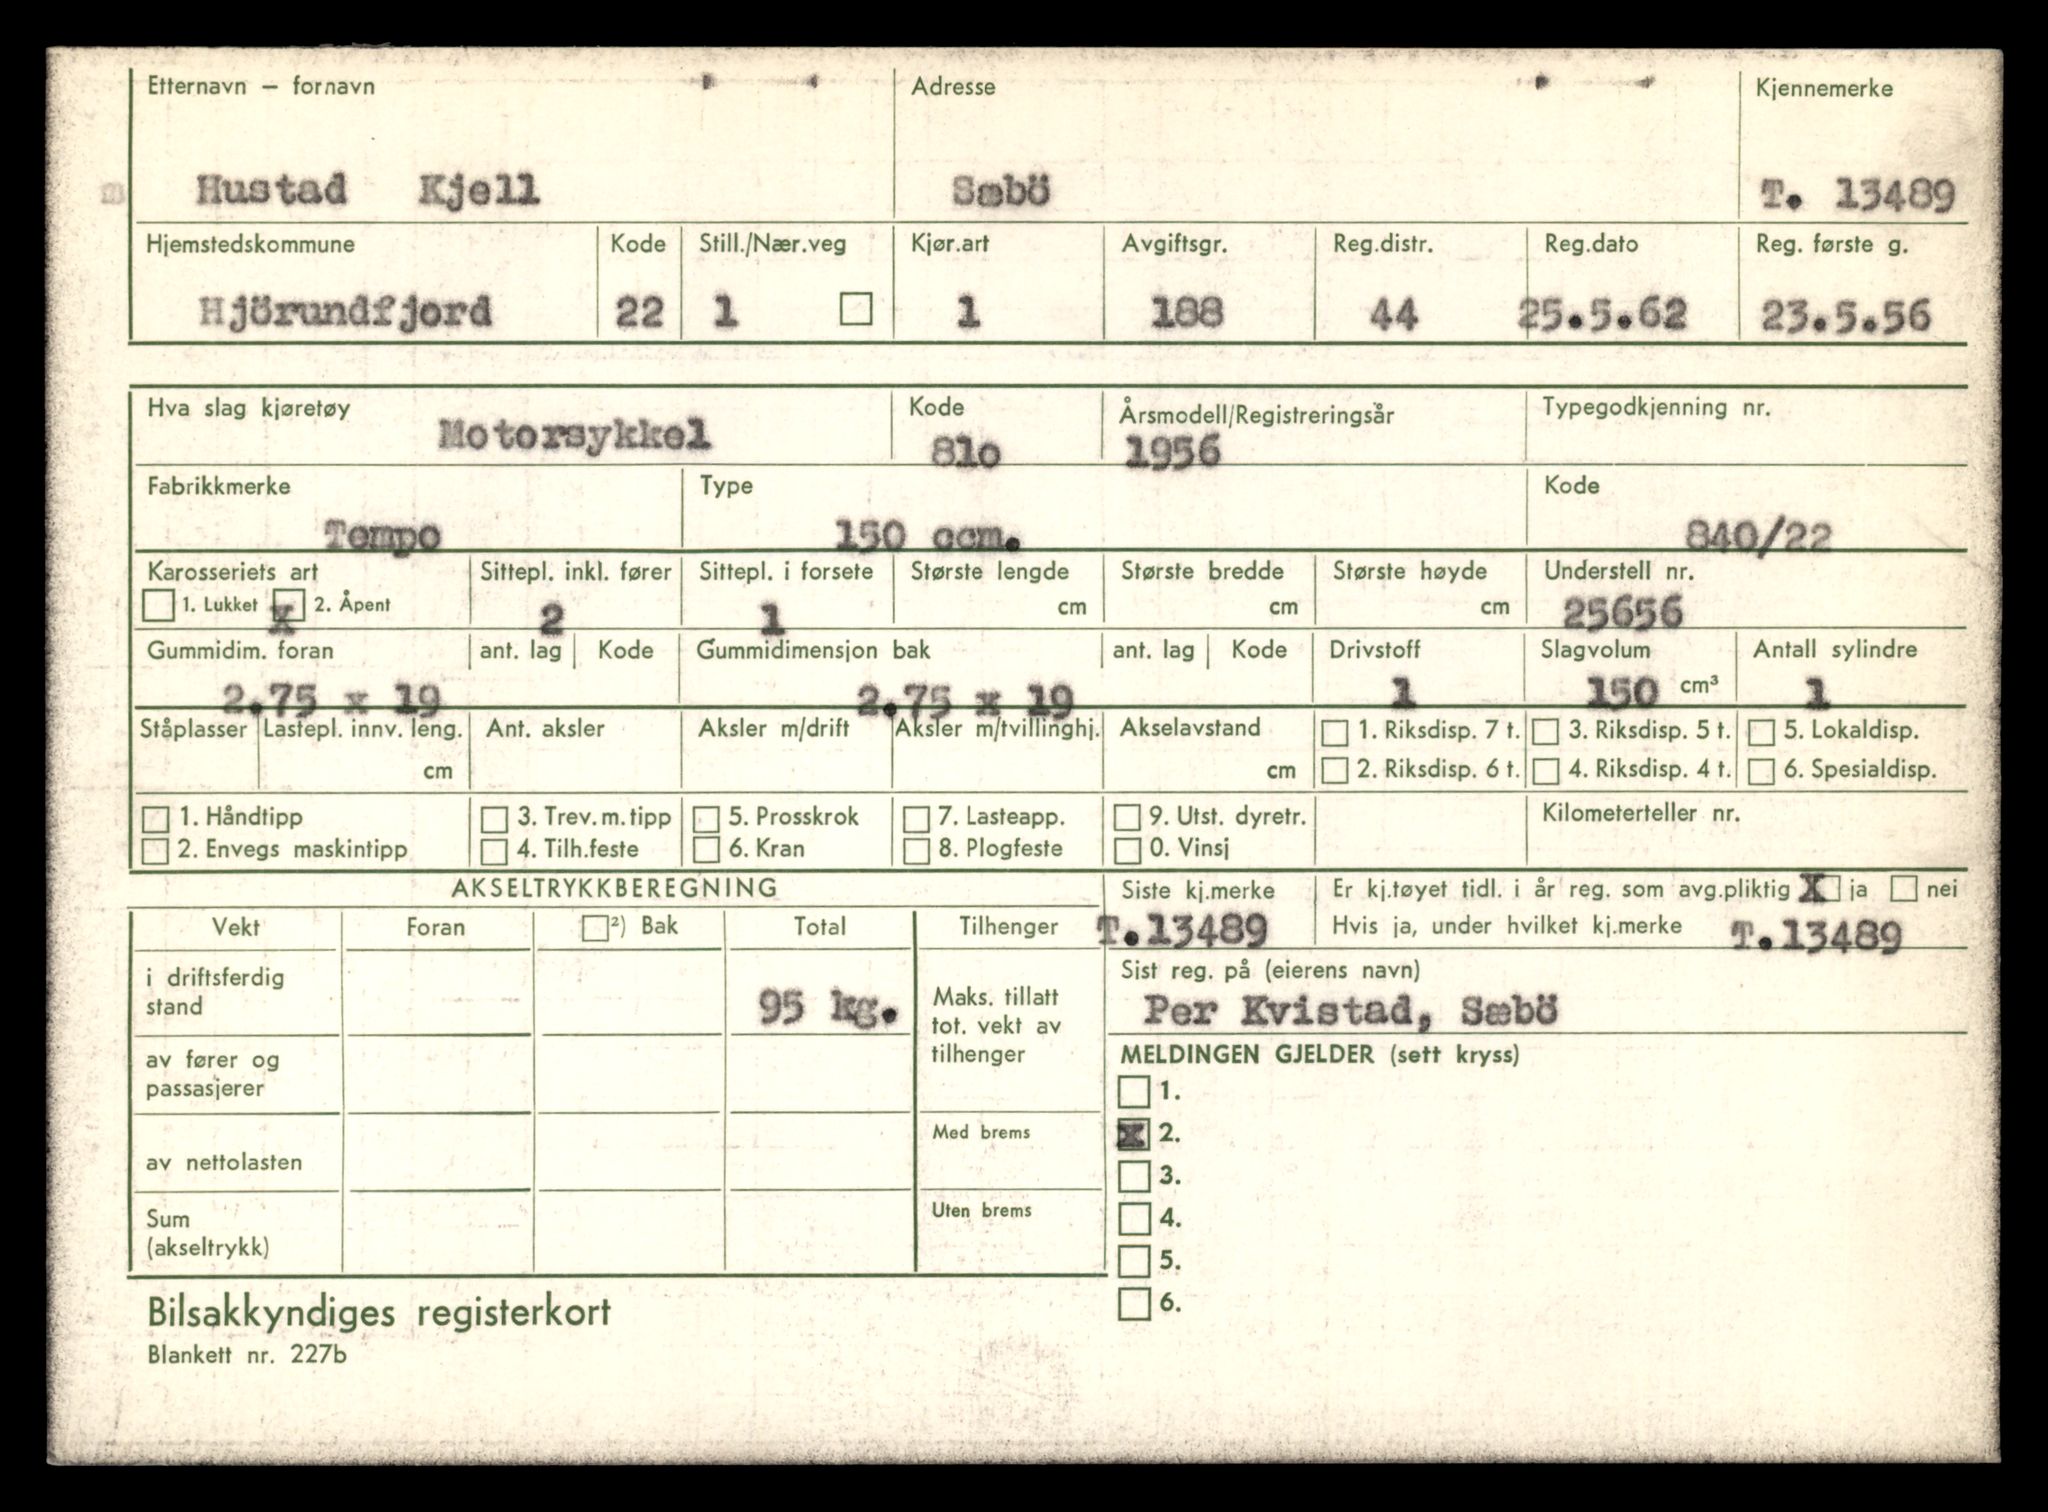 Etternavn — fornavn Adresse Kjennemerke
Hustad Kjell Sæbö T. 13489
Hjemstedskommune Kode Still./Nær.veg Kjør.art Avgiftsgr. Reg.distr. Reg.dato Reg. første g.
Hjörundfjord 22 1 1 188 44 25.5.62 23.5.56
Hva slag kjøretøy Kode Årsmodell/Registreringsår Typegodkjenning nr.
Motorsykkel 81o 1956
Fabrikkmerke Type Kode
Tempo 150 ccm. 840/22
Karosseriets art Sittepl. inkl. fører Sittepl. i forsete Største lengde Største bredde Største høyde Understell nr.
1. Lukket x 2. Åpent 2 1 cm cm cm 25656
Gummidim. foran ant. lag Kode Gummidimensjon bak ant. lag Kode Drivstoff Slagvolum Antall sylindre
2.75 x 19 2.75 x 19 1 150 cm³ 1
Ståplasser Lastepl. innv. leng. Ant. aksler Aksler m/drift Aksler m/tvillinghj. Akselavstand 1. Riksdisp. 7 t. 3. Riksdisp. 5 t. 5. Lokaldisp.
cm cm 2. Riksdisp. 6 t. 4. Riksdisp. 4 t. 6. Spesialdisp.
1. Håndtipp 3. Trev. m. tipp 5. Prosskrok 7. Lasteapp. 9. Utst. dyretr. Kilometerteller nr.
2. Envegs maskintipp 4. Tilh.feste 6. Kran 8. Plogfeste 0. Vinsj
AKSELTRYKKBEREGNING Siste kj.merke Er kj.tøyet tidl. i år reg. som avg.pliktig X ja nei
Vekt Foran ²) Bak Total Tilhenger T.13489 Hvis ja, under hvilket kj.merke T.13489
i driftsferdig stand 95 kg. Maks. tillatt tot. vekt av tilhenger
Sist reg. på (eierens navn)
Per Kvistad, Sæbö
av fører og passasjerer
MELDINGEN GJELDER (sett kryss)
1.
x 2.
Med brems
av nettolasten
3.
4.
Uten brems
Sum (akseltrykk)
5.
6.
Bilsakkyndiges registerkort
Blankett nr. 227b